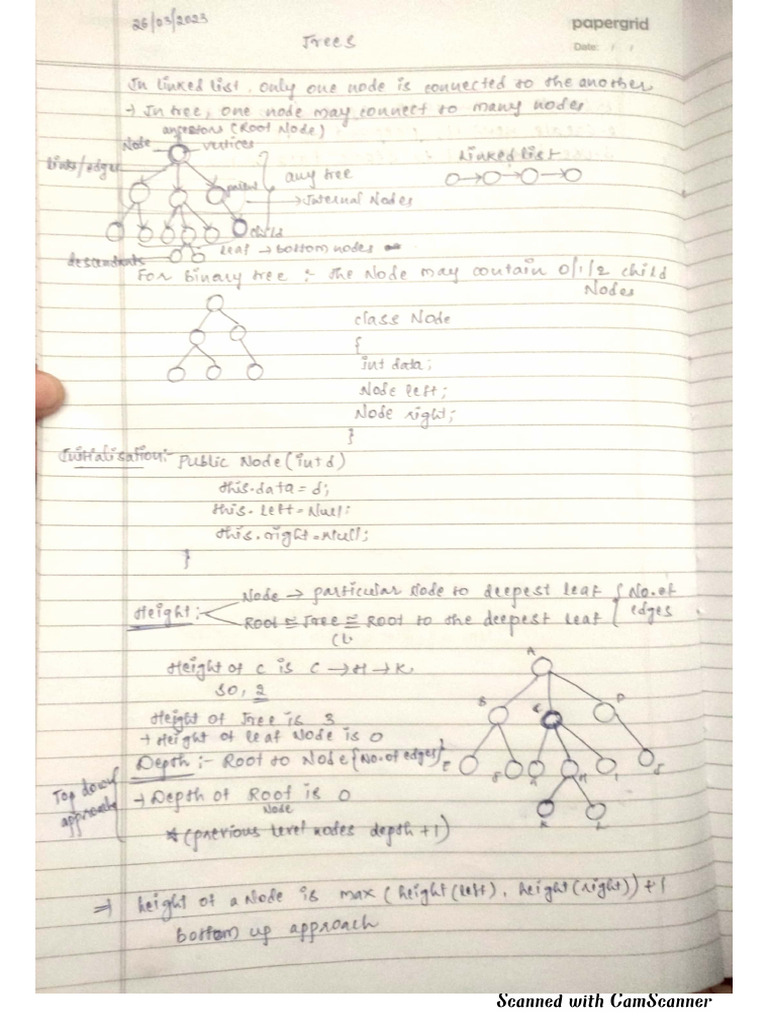 26/03/2023
papergrid
Date: / /
Trees
In linked list, only one node is connected to the another
→ In tree, one node may connect to many nodes
ancestors (Root Node)
Node
vertices
links/edges
any tree
parent
→ Internal Nodes
child
Leaf → bottom nodes
descendants
Linked list
For Binary tree :- the Node may contain 0/1/2 child
Nodes
class Node
{
int data;
Node left;
Node right;
}
Initialisation:- Public Node (int d)
this.data = d;
this.left = Null;
this.right = Null;
}
Height :-
Node → particular Node to deepest leaf
Root ≅ Tree ≅ Root to the deepest leaf
{No. of
edges
Height of C is C → H → K
so, 2
Height of Tree is 3
→ Height of leaf Node is 0
Depth :- Root to Node {No. of edges}
Top down
approach
→ Depth of Root is 0
Node
* (previous level nodes depth + 1)
A
B
C
D
E
F
G
H
I
J
K
L
⇒ height of a Node is max (height(left), height(right)) + 1
bottom up approach
Scanned with CamScanner